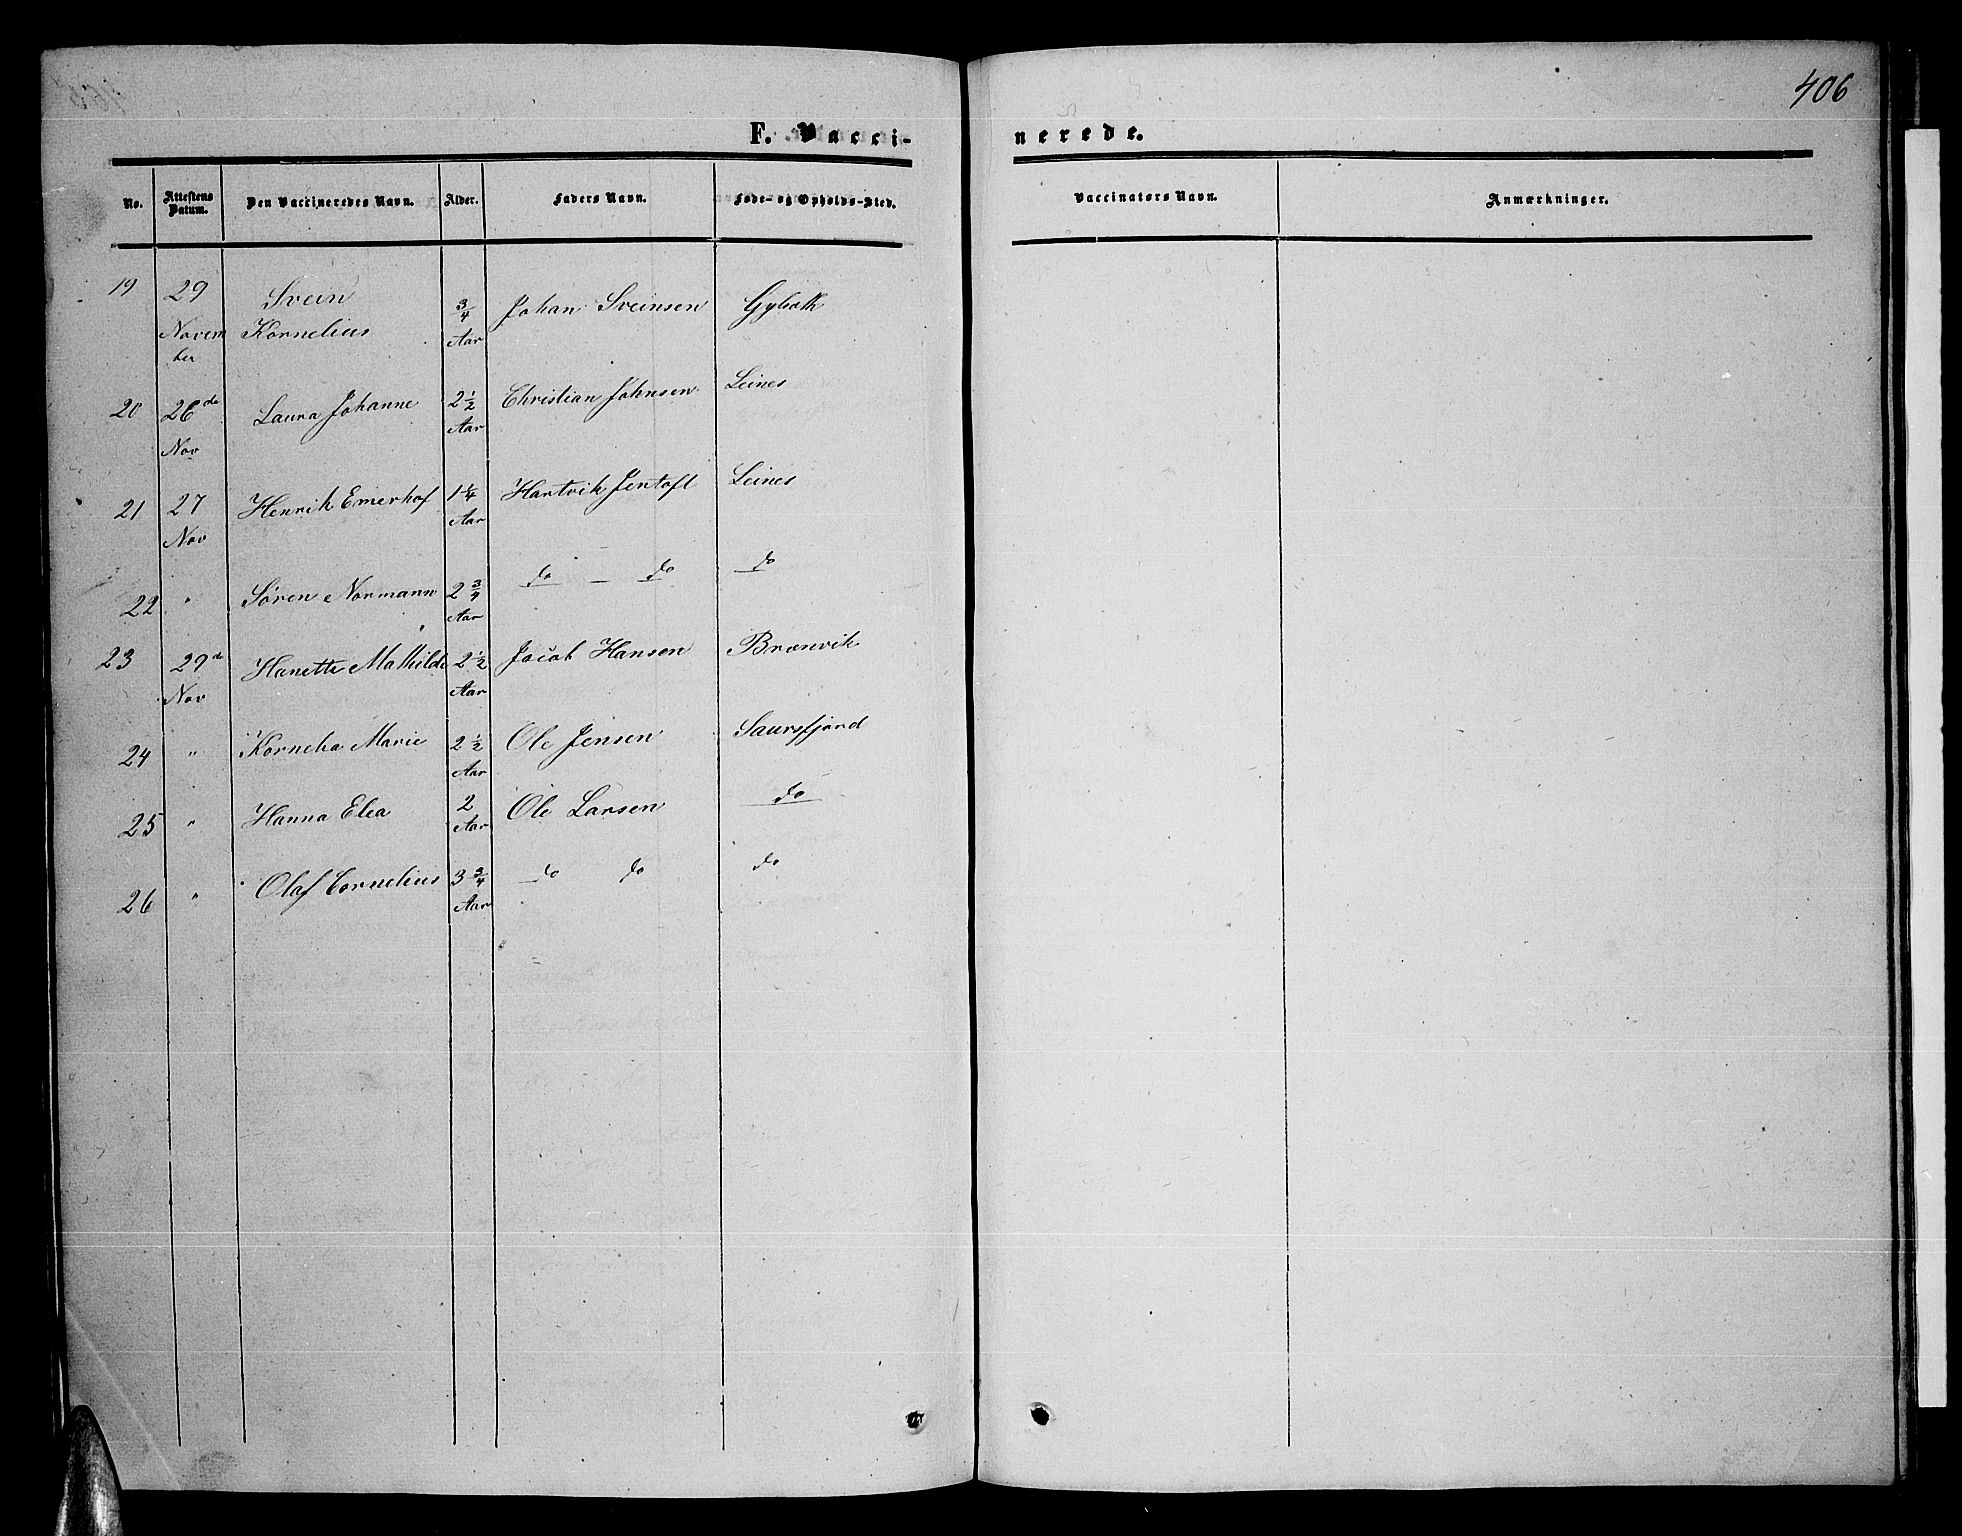 406
F. Vaccinerede.
No. Attestens Datum. Den Vaccineredes Navn. Alder. Faders Navn. Føde- og Opholds-Sted. Vaccinators Navn. Anmærkninger.
19 29 Svein 3/4 Johan Sveinsen
Novem Kornelius Aar
ber
20 26de Laura Johanne 2 1/2 Christian Johnsen Leines
Nov Aar
21 27 Henrik Emerhof 1 1/4 Hartvik Jentoft Leines
Nov Aar
22 " Søren Normann 2 3/4 do — do do
Aar
23 29de Hanette Mathilde 2 1/2 Jacob Hansen Brænvik
Nov Aar
24 " Kornelia Marie 2 1/2 Ole Jensen Saursfjord
Aar
25 " Hanna Elea 2 Ole Larsen do
Aar
26 " Olaf Cornelius 3 3/4 do do do
Aar